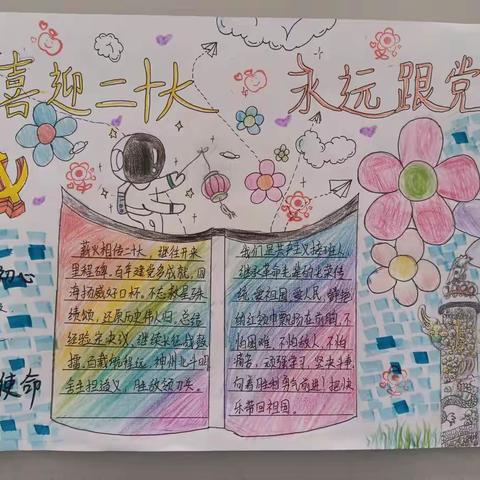 喜迎二十大 永远跟党
初心
使命
薪火相传二十大，继往开来
里程碑，百年建党多成就，四
海扬威好口杯，不忘教星殊
绩颂，还原历史伟人归，总结
经验定决议，继续长征战鼓
擂，百载航程远，神州北斗明
舍生担道义，胜敌领刀头。
我们是共产主义接班人，
继承革命先辈的光荣传
统，爱祖国，爱人民，鲜艳
的红领巾飘扬在前胸，不
怕困难，不怕敌人，不怕
顽强学习，坚决斗争，
向着胜利勇敢前进，把快
乐带回祖国。